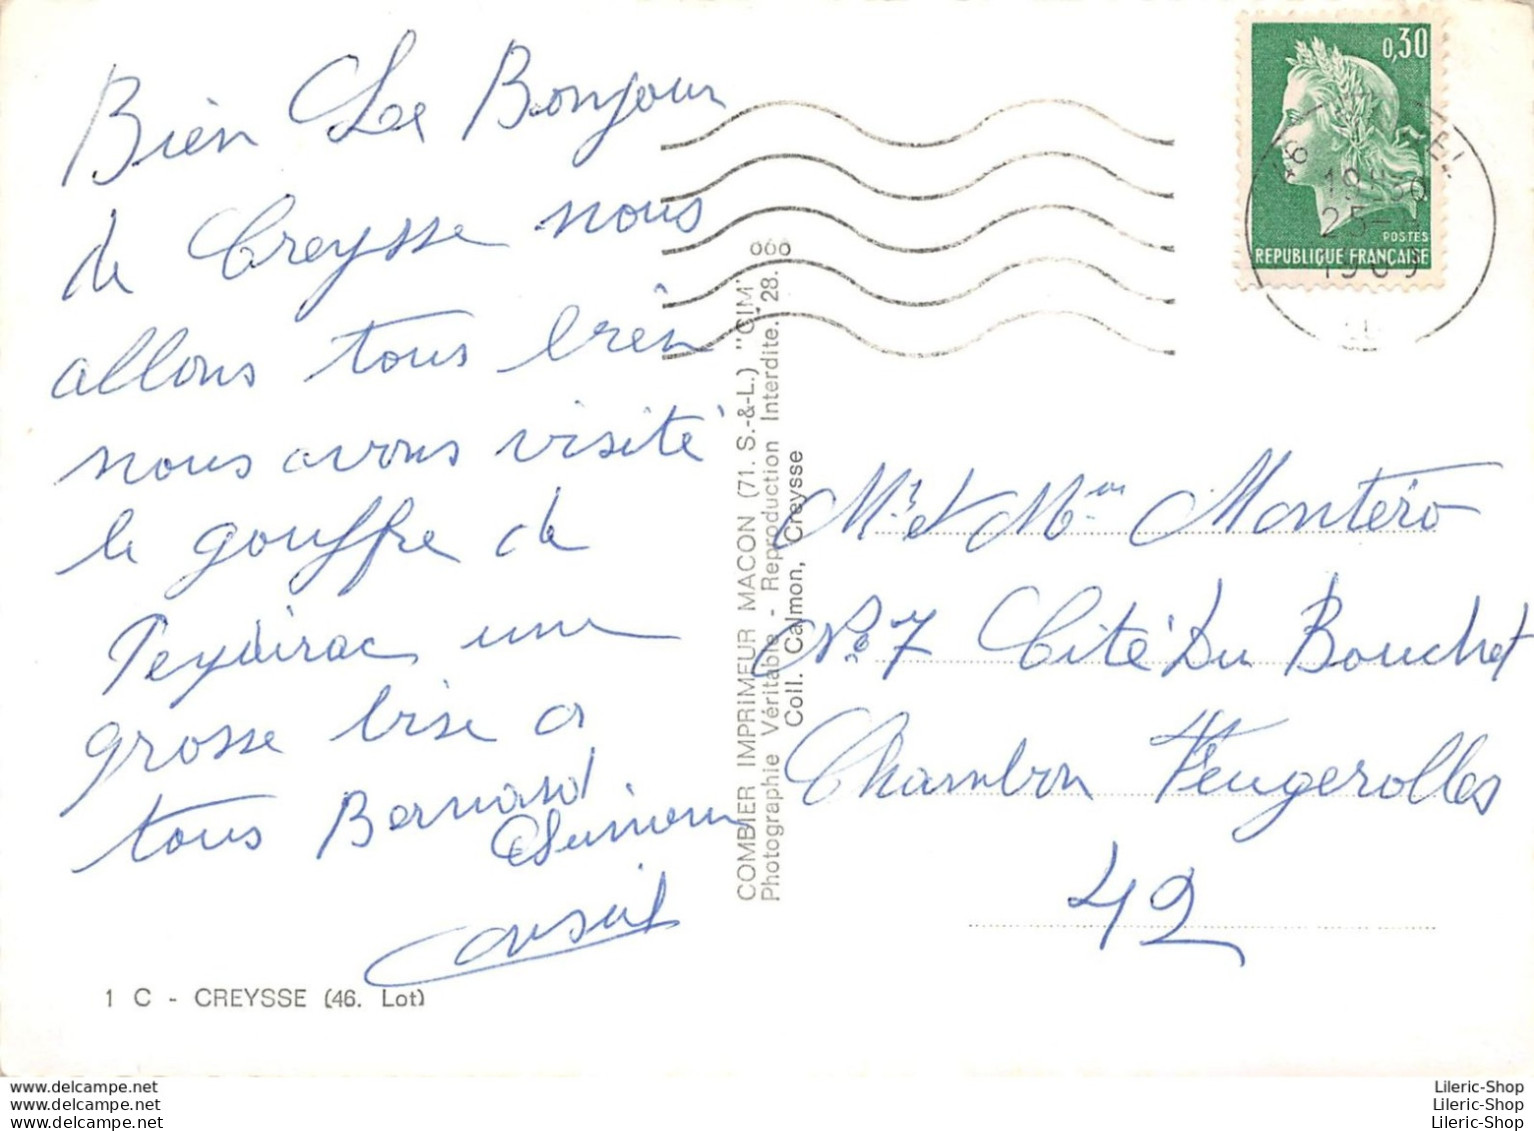 Bien Le Bonjour
de Creysse nous
allons tous bien
nous avons visité
le gouffre de
Peydirac une
grosse bise a
tous Bernard
1 C - CREYSSE (46. Lot)
COMBIER IMPRIMEUR MACON (71. S.-&-L.) "CIM"
Photographie Véritable - Reproduction Interdite. 28.
Coll. Calmon, Creysse
0,30
POSTES
REPUBLIQUE FRANÇAISE
25-
1969
Mr et Mme Montéro
No 7 Cité Du Bouchet
Chambon Feugerolles
42
www.delcampe.net
www.delcampe.net
www.delcampe.net
Lileric-Shop
Lileric-Shop
Lileric-Shop